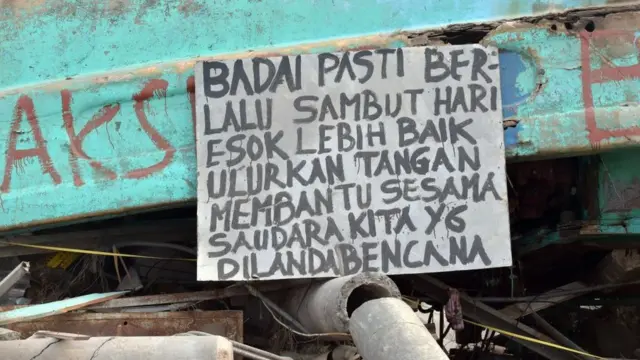 BADAI PASTI BER-
LALU SAMBUT HARI
ESOK LEBIH BAIK
ULURKAN TANGAN
MEMBANTU SESAMA
SAUDARA KITA YG
DILANDA BENCANA
AKS